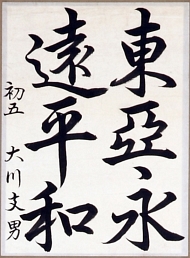 東亞永
遠平和
初五 大川支男